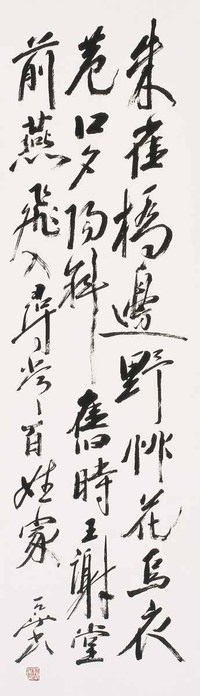 朱雀橋邊野艸花烏衣
巷口夕陽斜舊時王謝堂
前燕飛入尋常百姓家